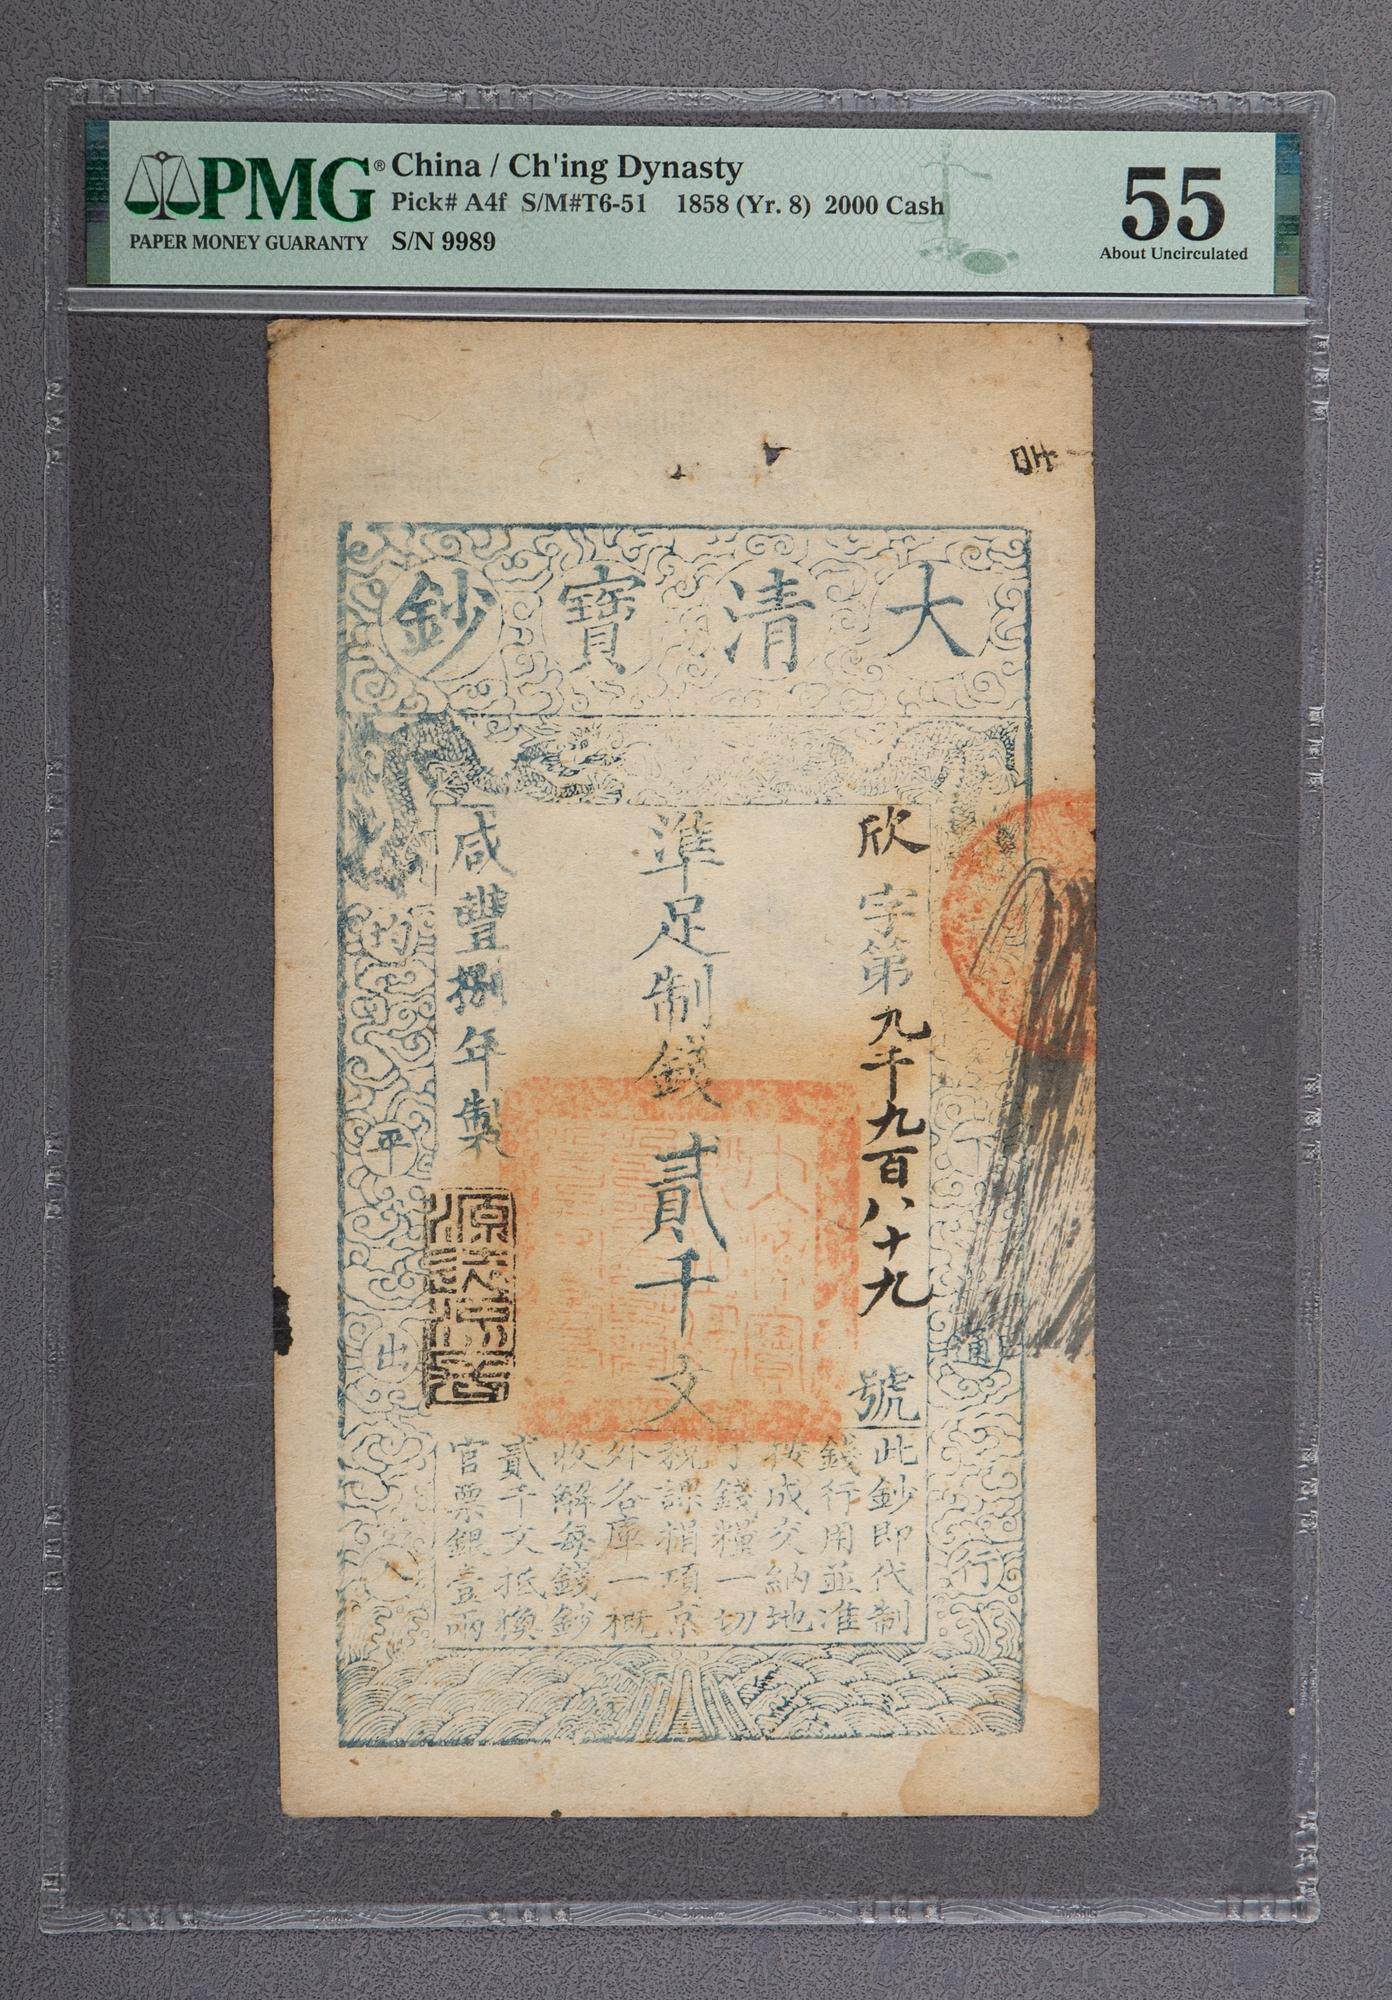 PMG®
PAPER MONEY GUARANTY
China / Ch'ing Dynasty
Pick# A4f S/M#T6-51 1858 (Yr. 8) 2000 Cash
S/N 9989
55
About Uncirculated
大清寶鈔
欣字第九千九百八十九號
準足制錢貳千文
咸豐捌年製
下通行
均平出
此鈔即代制
錢行用並准
按成交納地
丁錢糧一切
稅課捐項京
外各庫一概
收解每錢鈔
貳千文抵換
官票銀壹兩